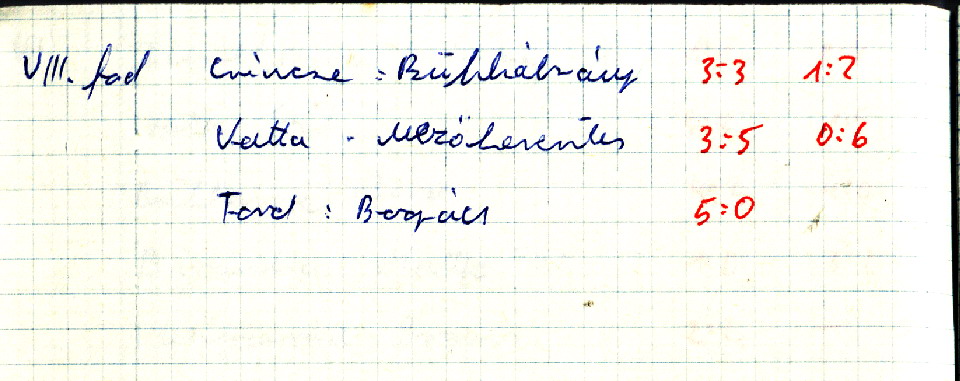 VIII. fad Csincse : Bükkábrány 3:3 1:2
Vatta - Mezőkeresztes 3:5 0:6
Tard : Bogács 5:0